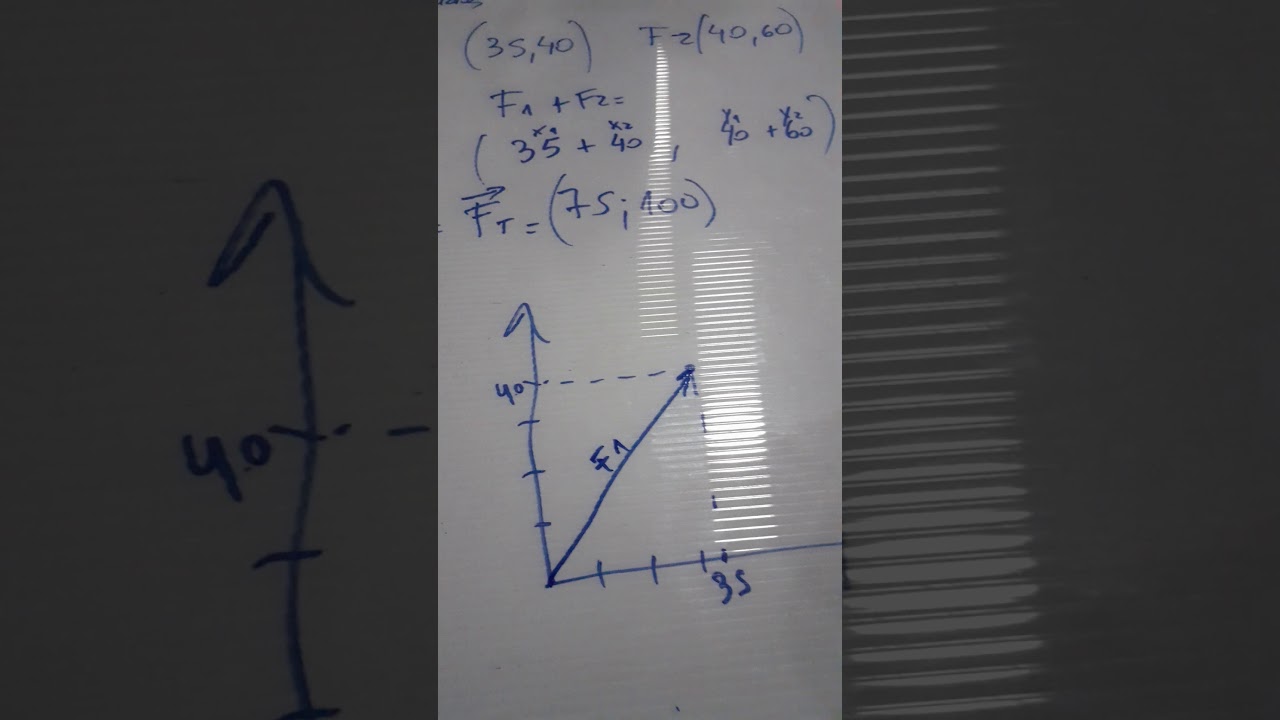 (35,40) F2(40,60)
F1 + F2=
x1 x2 y1 y2
( 35 + 40 , 40 + 60 )
= FT = (75; 100)
40
F1
35
40